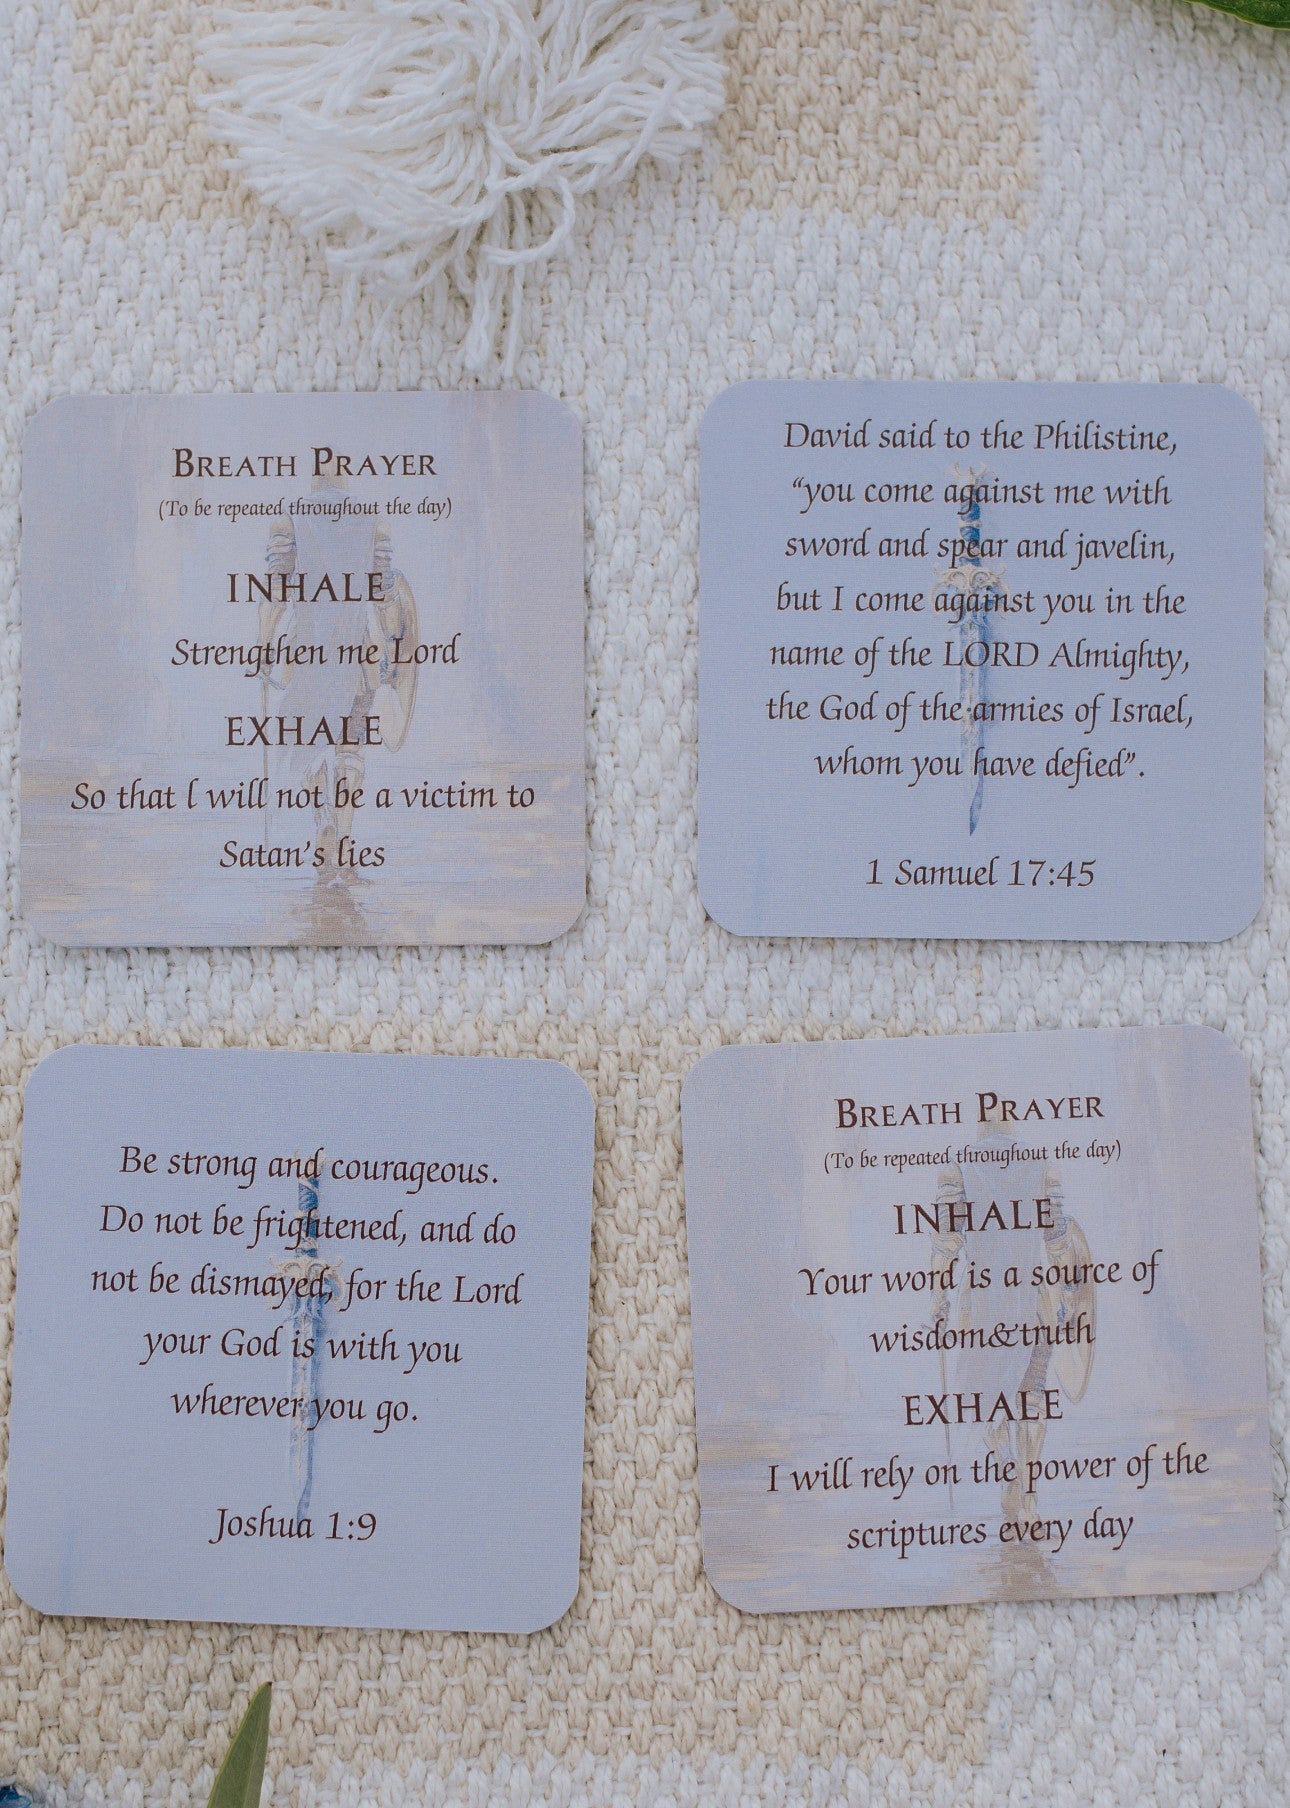 BREATH PRAYER
(To be repeated throughout the day)
INHALE
Strengthen me Lord
EXHALE
So that l will not be a victim to
Satan's lies
David said to the Philistine,
“you come against me with
sword and spear and javelin,
but I come against you in the
name of the LORD Almighty,
the God of the armies of Israel,
whom you have defied”.
1 Samuel 17:45
Be strong and courageous.
Do not be frightened, and do
not be dismayed, for the Lord
your God is with you
wherever you go.
Joshua 1:9
BREATH PRAYER
(To be repeated throughout the day)
INHALE
Your word is a source of
wisdom&truth
EXHALE
I will rely on the power of the
scriptures every day